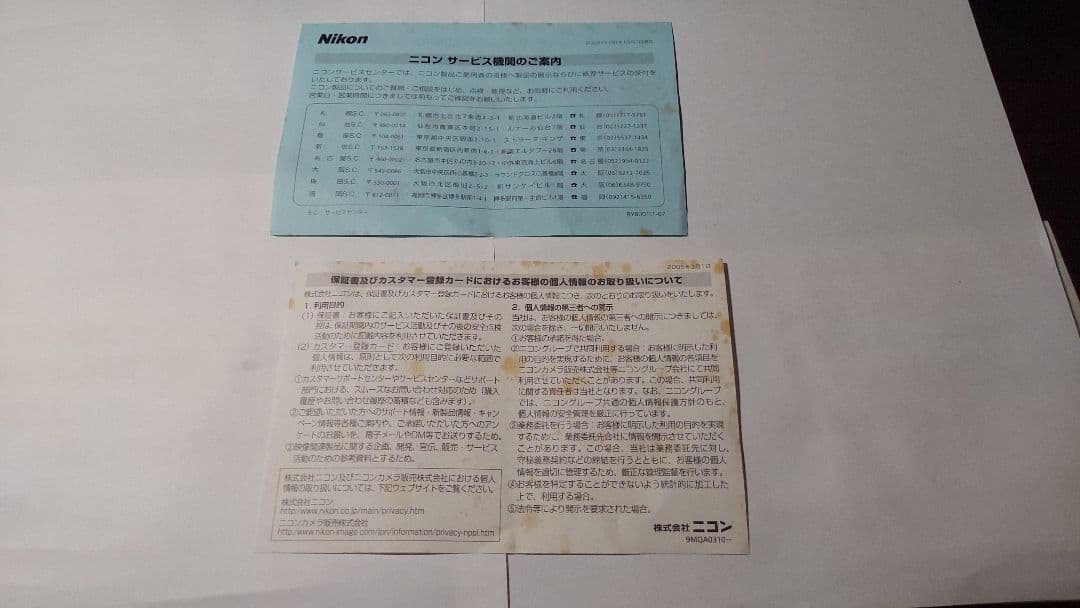 Nikon
ニコン サービス機関のご案内
ニコンサービスセンターでは、ニコン製品ご愛用者の皆様へ製品の展示ならびに修理サービスの受付を
いたしております。
ニコン製品についてのご質問・ご相談をはじめ、点検、修理など、お気軽にご利用ください。
営業日、営業時間につきましては前もってご確認をお願いいたします。
札 幌S.C. 〒060-0807 札幌市北区北7条西 新北海道ビル2階 ☎札
仙 台S.C. 〒980-0014 仙台市青葉区本町2-15-1 ルナール仙台7階 ☎仙 台(022)227-1237
銀 座S.C. 〒104-0061 東京都中央区銀座 ストラータ ギンザ ☎東 京(03)5537-1434
新 宿S.C. 〒163-1528 東京都新宿区西新宿1-6-1 新宿エルタワー28階 ☎東
名古屋S.C. 〒460-0002 名古屋市中区丸の内3-20-17 中外東京海上ビル6階 ☎名古屋
大 阪S.C. 〒542-0086 大阪市中央区西心斎橋 ☎大 阪
梅 田S.C. 〒530-0001 大阪市北区梅田2-5-2 新サンケイビル1階 ☎大 阪(06)6348-9730
福 岡S.C. 福岡市博多区博多駅前1-4-1 ☎福 岡(092)415-6350
S.C.:サービスセンター
2005年3月1日
保証書及びカスタマー登録カードにおけるお客様の個人情報のお取り扱いについて
株式会社ニコンは、保証書及びカスタマー登録カードにおけるお客様の個人情報につき、次のとおりのお取り扱いをいたします。
1. 利用目的
(1) 保証書：お客様にご記入いただいた保証書及びその
控は、保証期間内のサービス活動及びその後の安全点検
活動のために記載内容を利用させていただきます。
(2) カスタマー登録カード：お客様にご登録いただいた
個人情報は、原則として次の利用目的に必要な範囲で
利用させていただきます。
①カスタマーサポートセンターやサービスセンターなどサポート
部門における、スムーズなお問い合わせ対応のため（購入
履歴やお問い合わせ履歴の蓄積なども含みます）。
②ご要望いただいた方へのサポート情報・新製品情報・キャン
ペーン情報等各種ご案内や、ご承諾いただいた方へのアン
ケートのお願いを、電子メールやDM等でお送りするため。
③映像関連製品に関する企画、開発、宣伝、販売・サービス
活動のための参考資料とするため。
株式会社ニコン及びニコンカメラ販売株式会社における個人
情報の取り扱いについては、下記ウェブサイトをご覧ください。
株式会社ニコン
http://www.nikon.co.jp/main/privacy.htm
ニコンカメラ販売株式会社
http://www.nikon-image.com/jpn/information/privacy-nppi.htm
2. 個人情報の第三者への開示
当社は、お客様の個人情報の第三者への開示につきましては、
次の場合を除き、一切開示いたしません。
①お客様の承諾を得た場合。
②ニコングループで共同利用する場合：お客様に明示した利
用の目的を実現するために、お客様の個人情報の各項目を
ニコンカメラ販売株式会社等ニコングループ会社にて共同
利用させていただくことがあります。この場合、共同利用
に関する責任者は当社となります。なお、ニコングループ
では、ニコングループ共通の個人情報保護方針のもと、
個人情報の安全管理を厳正に行っています。
③業務委託を行う場合：お客様に明示した利用の目的を実現
するために、業務委託先会社に情報を開示させていただく
ことがあります。この場合、当社は業務委託先に対し、
守秘義務契約などの締結を行うとともに、お客様の個人
情報を適切に管理するため、厳正な管理監督を行います。
④お客様を特定することができないよう統計的に加工した
上で、利用する場合。
⑤法令等により開示を要求された場合。
株式会社 ニコン
9MQA0310--